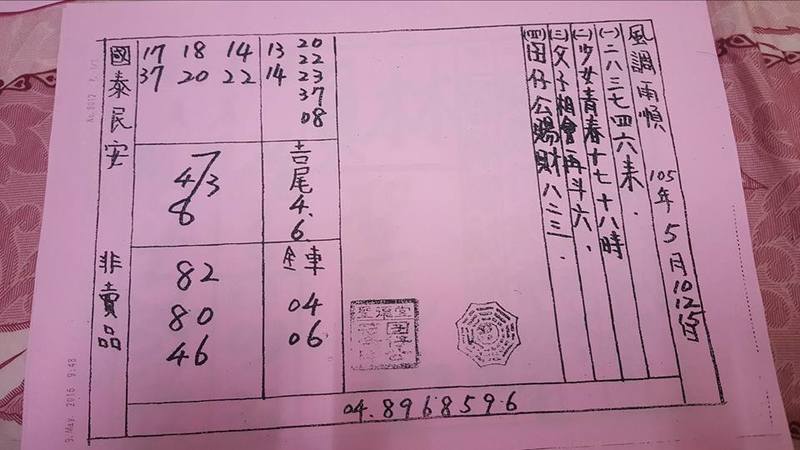 風調雨順 105年5月10 12 15日
(一)二八三七四六未.
(二)少女青春十七十八時
(三)父子相會再斗六.
(四)囝仔公賜財八二三.
20
13 22
14 23
37
08
吉尾4.6
全車
04
06
17 18 14
37 20 22
7
4/3
8
82
80
46
國泰民安 非賣品
04.8968596
9.May. 2016 9:48
No.8012 P. 1/1